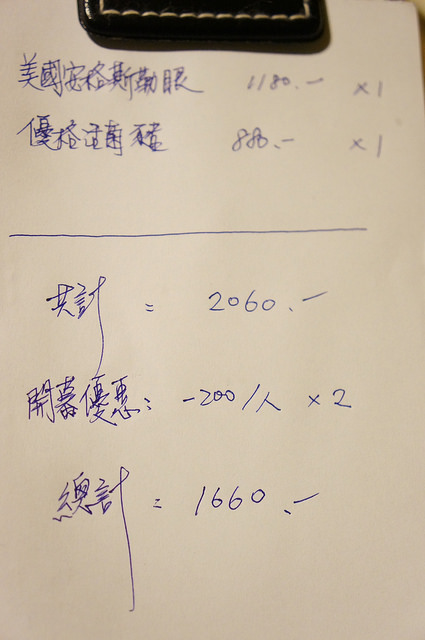 美國安格斯勒眼 1180.- ×1
優格 880.- ×1
共計 = 2060.-
開幕優惠: -200/人 ×2
總計 = 1660.-